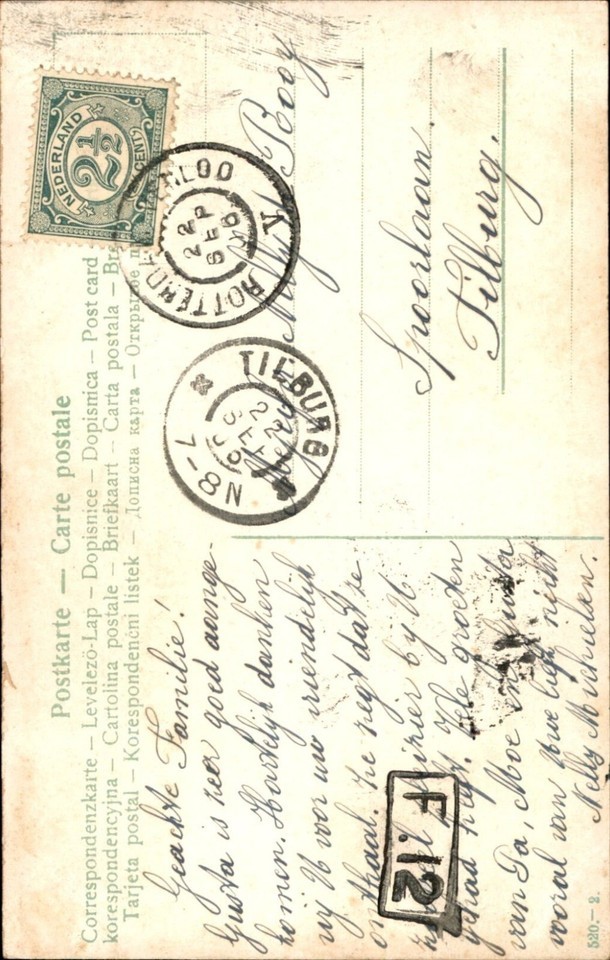 Postkarte — Carte postale
Correspondenzkarte – Levelező-Lap – Dopisnice – Dopisnica – Post card
korespondencyjna – Cartolina postale – Briefkaart – Carta postala – Br
Tarjeta postal – Korespondenční listek – Дописна карта – Открытое п
NEDERLAND
2½
CENT
ROTTERDA
22
SEP
TILBURG
SEP
7-8N
Spoorlaan.
Tilburg.
Geachte Familie!
Gusta is zeer goed aange-
komen. Hartelijk danken
wij U voor uw vriendelijk
onthaal. Ze zegt dat ze
plezier bij U
gehad heeft. Vele groeten
van Pa, Moe en
vooral van uwe nicht
Nelly Michielsen.
F.12
520.–2.